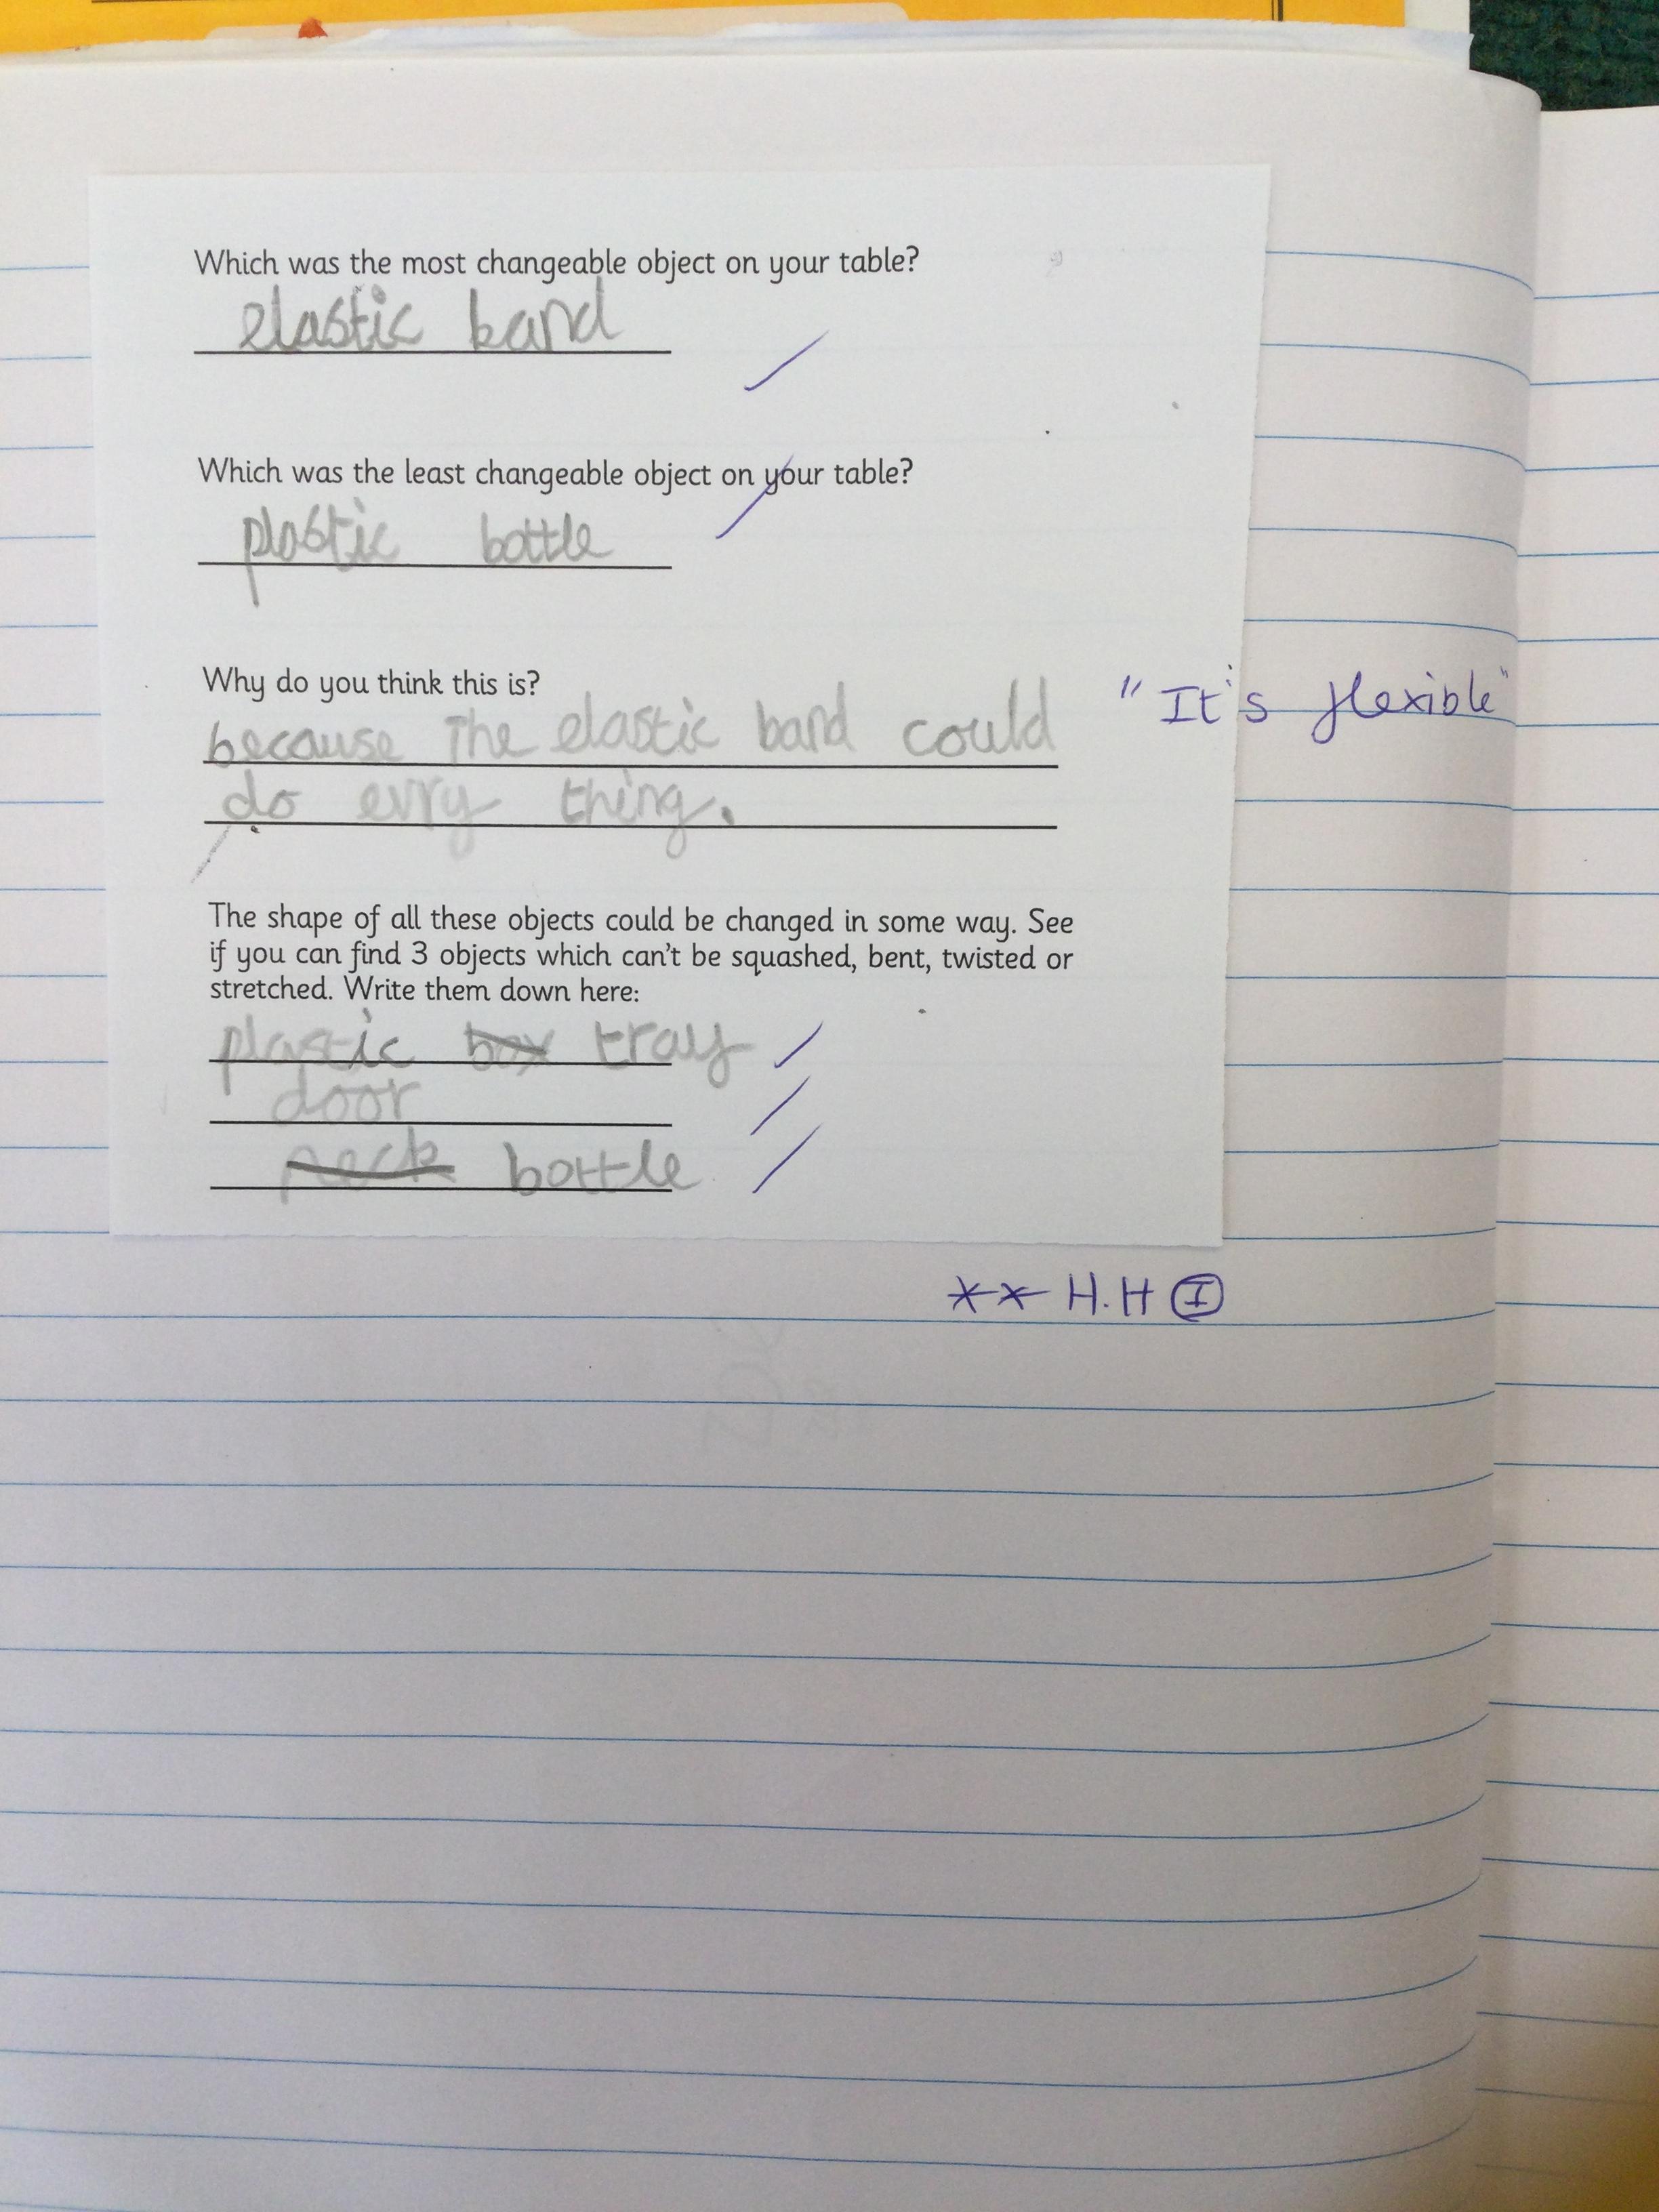 Which was the most changeable object on your table?
elastic band
Which was the least changeable object on your table?
plastic bottle
Why do you think this is?
"It's flexible"
because the elastic band could
do evry thing.
The shape of all these objects could be changed in some way. See
if you can find 3 objects which can't be squashed, bent, twisted or
stretched. Write them down here:
plastic box tray
door
bottle
** H.H I